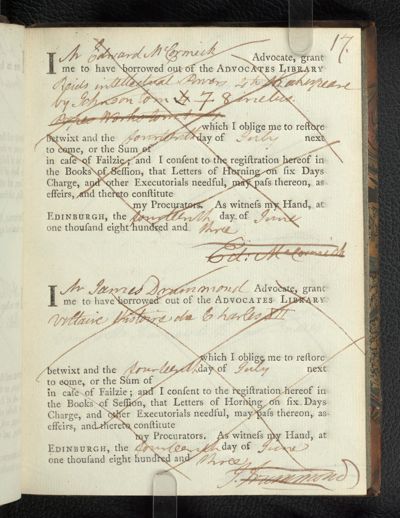 17.
I Mr Edward McCormick Advocate, grant
me to have borrowed out of the ADVOCATES LIBRARY
Reids intellectual Powers 4to Shakespeare
by Johnson tom 7. 8
Popes Works tom 1
which I oblige me to reſtore
betwixt and the fourteenth day of July next
to come, or the Sum of
in caſe of Failzie; and I conſent to the regiſtration hereof in
the Books of Seſſion, that Letters of Horning on ſix Days
Charge, and other Executorials needful, may paſs thereon, as
effeirs, and thereto conſtitute
my Procurators. As witneſs my Hand, at
EDINBURGH, the fourteenth day of June
one thouſand eight hundred and three
Ed: McCormick
I Mr James Drummond Advocate, grant
me to have borrowed out of the ADVOCATES LIBRARY
Voltaire Histoire de Charles XII
which I oblige me to reſtore
betwixt and the fourteenth day of July next
to come, or the Sum of
in caſe of Failzie; and I conſent to the regiſtration hereof in
the Books of Seſſion, that Letters of Horning on ſix Days
Charge, and other Executorials needful, may paſs thereon, as
effeirs, and thereto conſtitute
my Procurators. As witneſs my Hand, at
EDINBURGH, the fourteenth day of June
one thouſand eight hundred and three
J. Drummond